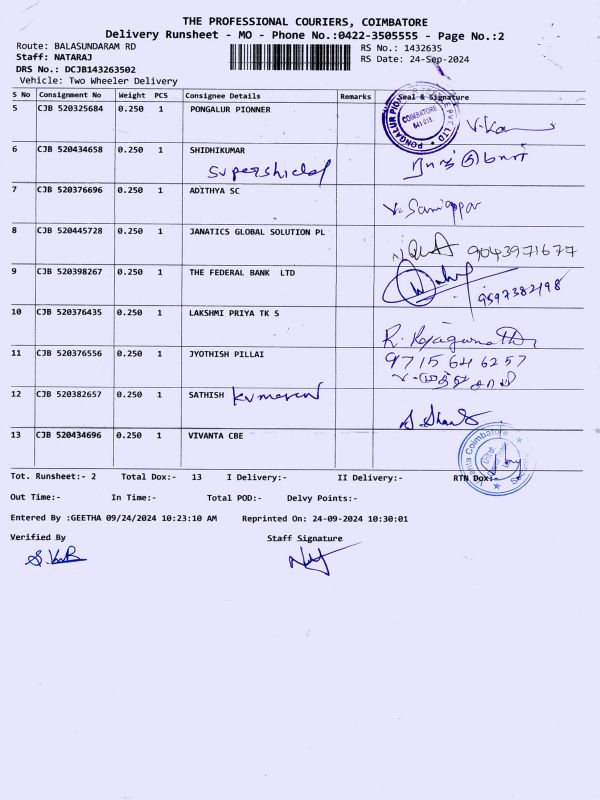 THE PROFESSIONAL COURIERS, COIMBATORE
Delivery Runsheet - MO - Phone No.:0422-3505555 - Page No.:2
Route: BALASUNDARAM RD RS No.: 1432635
Staff: NATARAJ RS Date: 24-Sep-2024
DRS No.: DCJB143263502
Vehicle: Two Wheeler Delivery
S No Consignment No Weight PCS Consignee Details Remarks Seal & Signature
5 CJB 520325684 0.250 1 PONGALUR PIONNER
COIMBATORE
6 CJB 520434658 0.250 1 SHIDHIKUMAR
Supershield
7 CJB 520376696 0.250 1 ADITHYA SC
V. Samiappan
8 CJB 520445728 0.250 1 JANATICS GLOBAL SOLUTION PL
9043971677
9 CJB 520398267 0.250 1 THE FEDERAL BANK LTD
9597382198
10 CJB 520376435 0.250 1 LAKSHMI PRIYA TK S
11 CJB 520376556 0.250 1 JYOTHISH PILLAI
9715646257
12 CJB 520382657 0.250 1 SATHISH Kumaran
13 CJB 520434696 0.250 1 VIVANTA CBE
Vivanta Coimbatore
Tot. Runsheet:- 2 Total Dox:- 13 I Delivery:- II Delivery:- RTN Dox:-
Out Time:- In Time:- Total POD:- Delvy Points:-
Entered By :GEETHA 09/24/2024 10:23:10 AM Reprinted On: 24-09-2024 10:30:01
Verified By Staff Signature